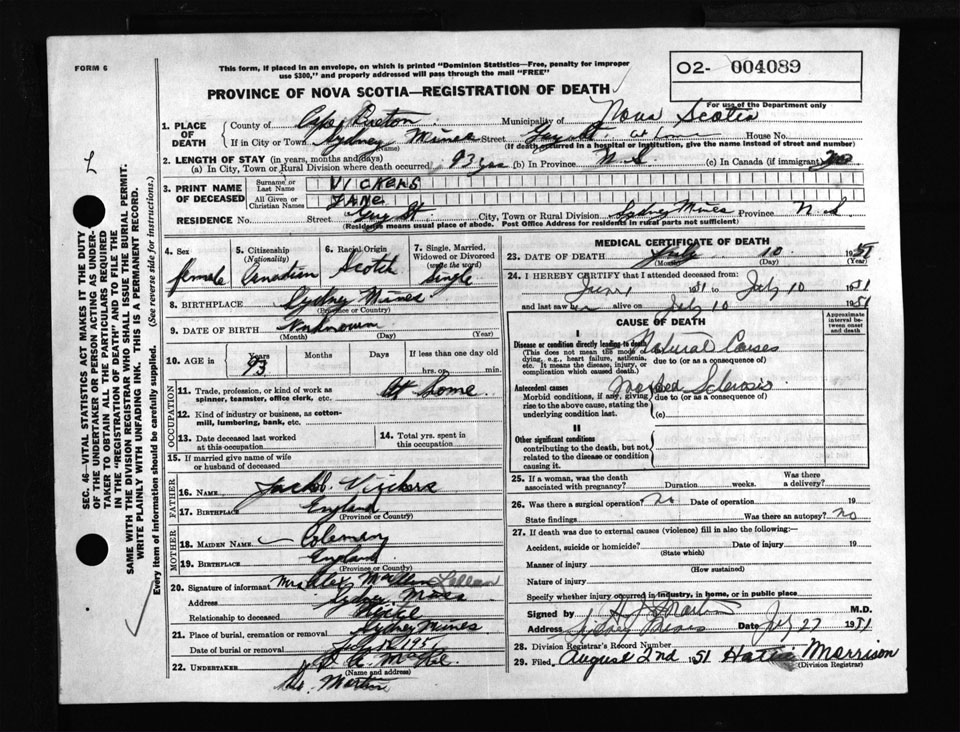 FORM 6
This form, if placed in an envelope, on which is printed "Dominion Statistics—Free, penalty for improper
use $300," and properly addressed will pass through the mail "FREE"
PROVINCE OF NOVA SCOTIA—REGISTRATION OF DEATH
02- 004089
For use of the Department only
1. PLACE OF DEATH
County of Cape Breton Municipality of Nova Scotia
If in City or Town Sydney Mines Street Guy St. at home House No.
(Name) (If death occurred in a hospital or institution, give the name instead of street and number)
2. LENGTH OF STAY (in years, months and days)
(a) In City, Town or Rural Division where death occurred 93 yrs (b) In Province N.S. (c) In Canada (if immigrant)
3. PRINT NAME OF DECEASED
Surname or Last Name VICKERS
All Given or Christian Names JANE
RESIDENCE No. Street Guy St. City, Town or Rural Division Sydney Mines Province N.S
(Residence means usual place of abode. Post Office Address for residents in rural parts not sufficient)
4. Sex
female
5. Citizenship
(Nationality)
Canadian
6. Racial Origin
Scotch
7. Single, Married, Widowed or Divorced
(write the word)
Single
8. BIRTHPLACE Sydney Mines
(Province or Country)
9. DATE OF BIRTH Unknown
(Month) (Day) (Year)
10. AGE in Years Months Days If less than one day old
93 hrs. or min.
OCCUPATION
11. Trade, profession, or kind of work as
spinner, teamster, office clerk, etc. At Home
12. Kind of industry or business, as cotton-
mill, lumbering, bank, etc.
13. Date deceased last worked
at this occupation
14. Total yrs. spent in
this occupation
15. If married give name of wife
or husband of deceased
FATHER
16. NAME Jacob Vickers
17. BIRTHPLACE England
(Province or Country)
MOTHER
18. MAIDEN NAME Coleman
19. BIRTHPLACE England
(Province or Country)
20. Signature of informant Mrs Alex Lellan
Address Sydney Mines
Relationship to deceased Niece
21. Place of burial, cremation or removal Sydney Mines
Date of burial or removal July 12 1951
22. UNDERTAKER
(Name and address)
MEDICAL CERTIFICATE OF DEATH
23. DATE OF DEATH July 10 1951
(Month) (Day) (Year)
24. I HEREBY CERTIFY that I attended deceased from:
June 1 1951 to July 10 1951
and last saw h alive on July 10 1951
CAUSE OF DEATH
Approximate interval between onset and death
I
Disease or condition directly leading to death
(This does not mean the mode of
dying, e.g., heart failure, asthenia,
etc. It means the disease, injury, or
complication which caused death.)
Natural Causes
due to (or as a consequence of)
Antecedent causes
Morbid conditions, if any, giving
rise to the above cause, stating the
underlying condition last.
Marked Sclerosis
due to (or as a consequence of)
(c)
II
Other significant conditions
contributing to the death, but not
related to the disease or condition
causing it.
25. If a woman, was the death
associated with pregnancy? Duration weeks. Was there a delivery?
26. Was there a surgical operation? no Date of operation 19
State findings Was there an autopsy? no
27. If death was due to external causes (violence) fill in also the following:—
Accident, suicide or homicide? Date of injury 19
(State which)
Manner of injury
(How sustained)
Nature of injury
Specify whether injury occurred in industry, in home, or in public place
Signed by Martin M.D.
Address Sydney Mines Date July 27 1951
28. Division Registrar's Record Number
29. Filed August 2nd 1951 Morrison
(Division Registrar)
SEC. 46—VITAL STATISTICS ACT MAKES IT THE DUTY
OF THE UNDERTAKER OR PERSON ACTING AS UNDER-
TAKER TO OBTAIN ALL THE PARTICULARS REQUIRED
IN THE "REGISTRATION OF DEATH" AND TO FILE THE
SAME WITH THE DIVISION REGISTRAR WHO SHALL ISSUE THE BURIAL PERMIT.
WRITE PLAINLY WITH UNFADING INK. THIS IS A PERMANENT RECORD.
Every item of information should be carefully supplied. (See reverse side for instructions.)